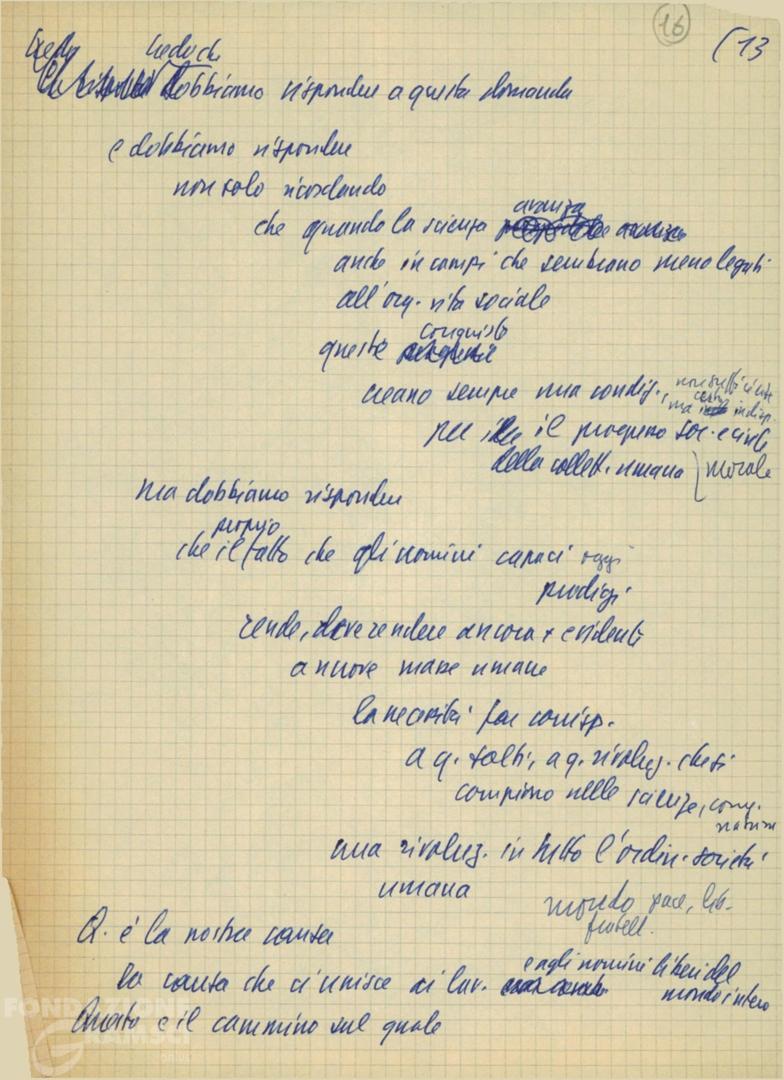 16 (13
Credo Credo che
dobbiamo rispondere a questa domanda
e dobbiamo rispondere
non solo ricordando
che quando la scienza avanza
anche in campi che sembrano meno legati
all'org. vita sociale
queste conquiste
creano sempre una condiz., non sufficiente
certo ma indisp.
per il progresso soc. e civile
della collett. umana | morale
ma dobbiamo rispondere
proprio
che il fatto che gli uomini capaci oggi
prodigi
rende, deve rendere ancora + evidente
a nuove masse umane
la necessità far corrisp.
a q. salti, a q. rivoluz. che si
compiono nelle scienze, conq.
natura
una rivoluz. in tutto l'ordin. società
umana
mondo pace, lib.
fratell.
Q. è la nostra causa
la causa che ci unisce ai lav. e agli uomini liberi del
mondo intero
Questo è il cammino sul quale
FONDAZIONE
GRAMSCI